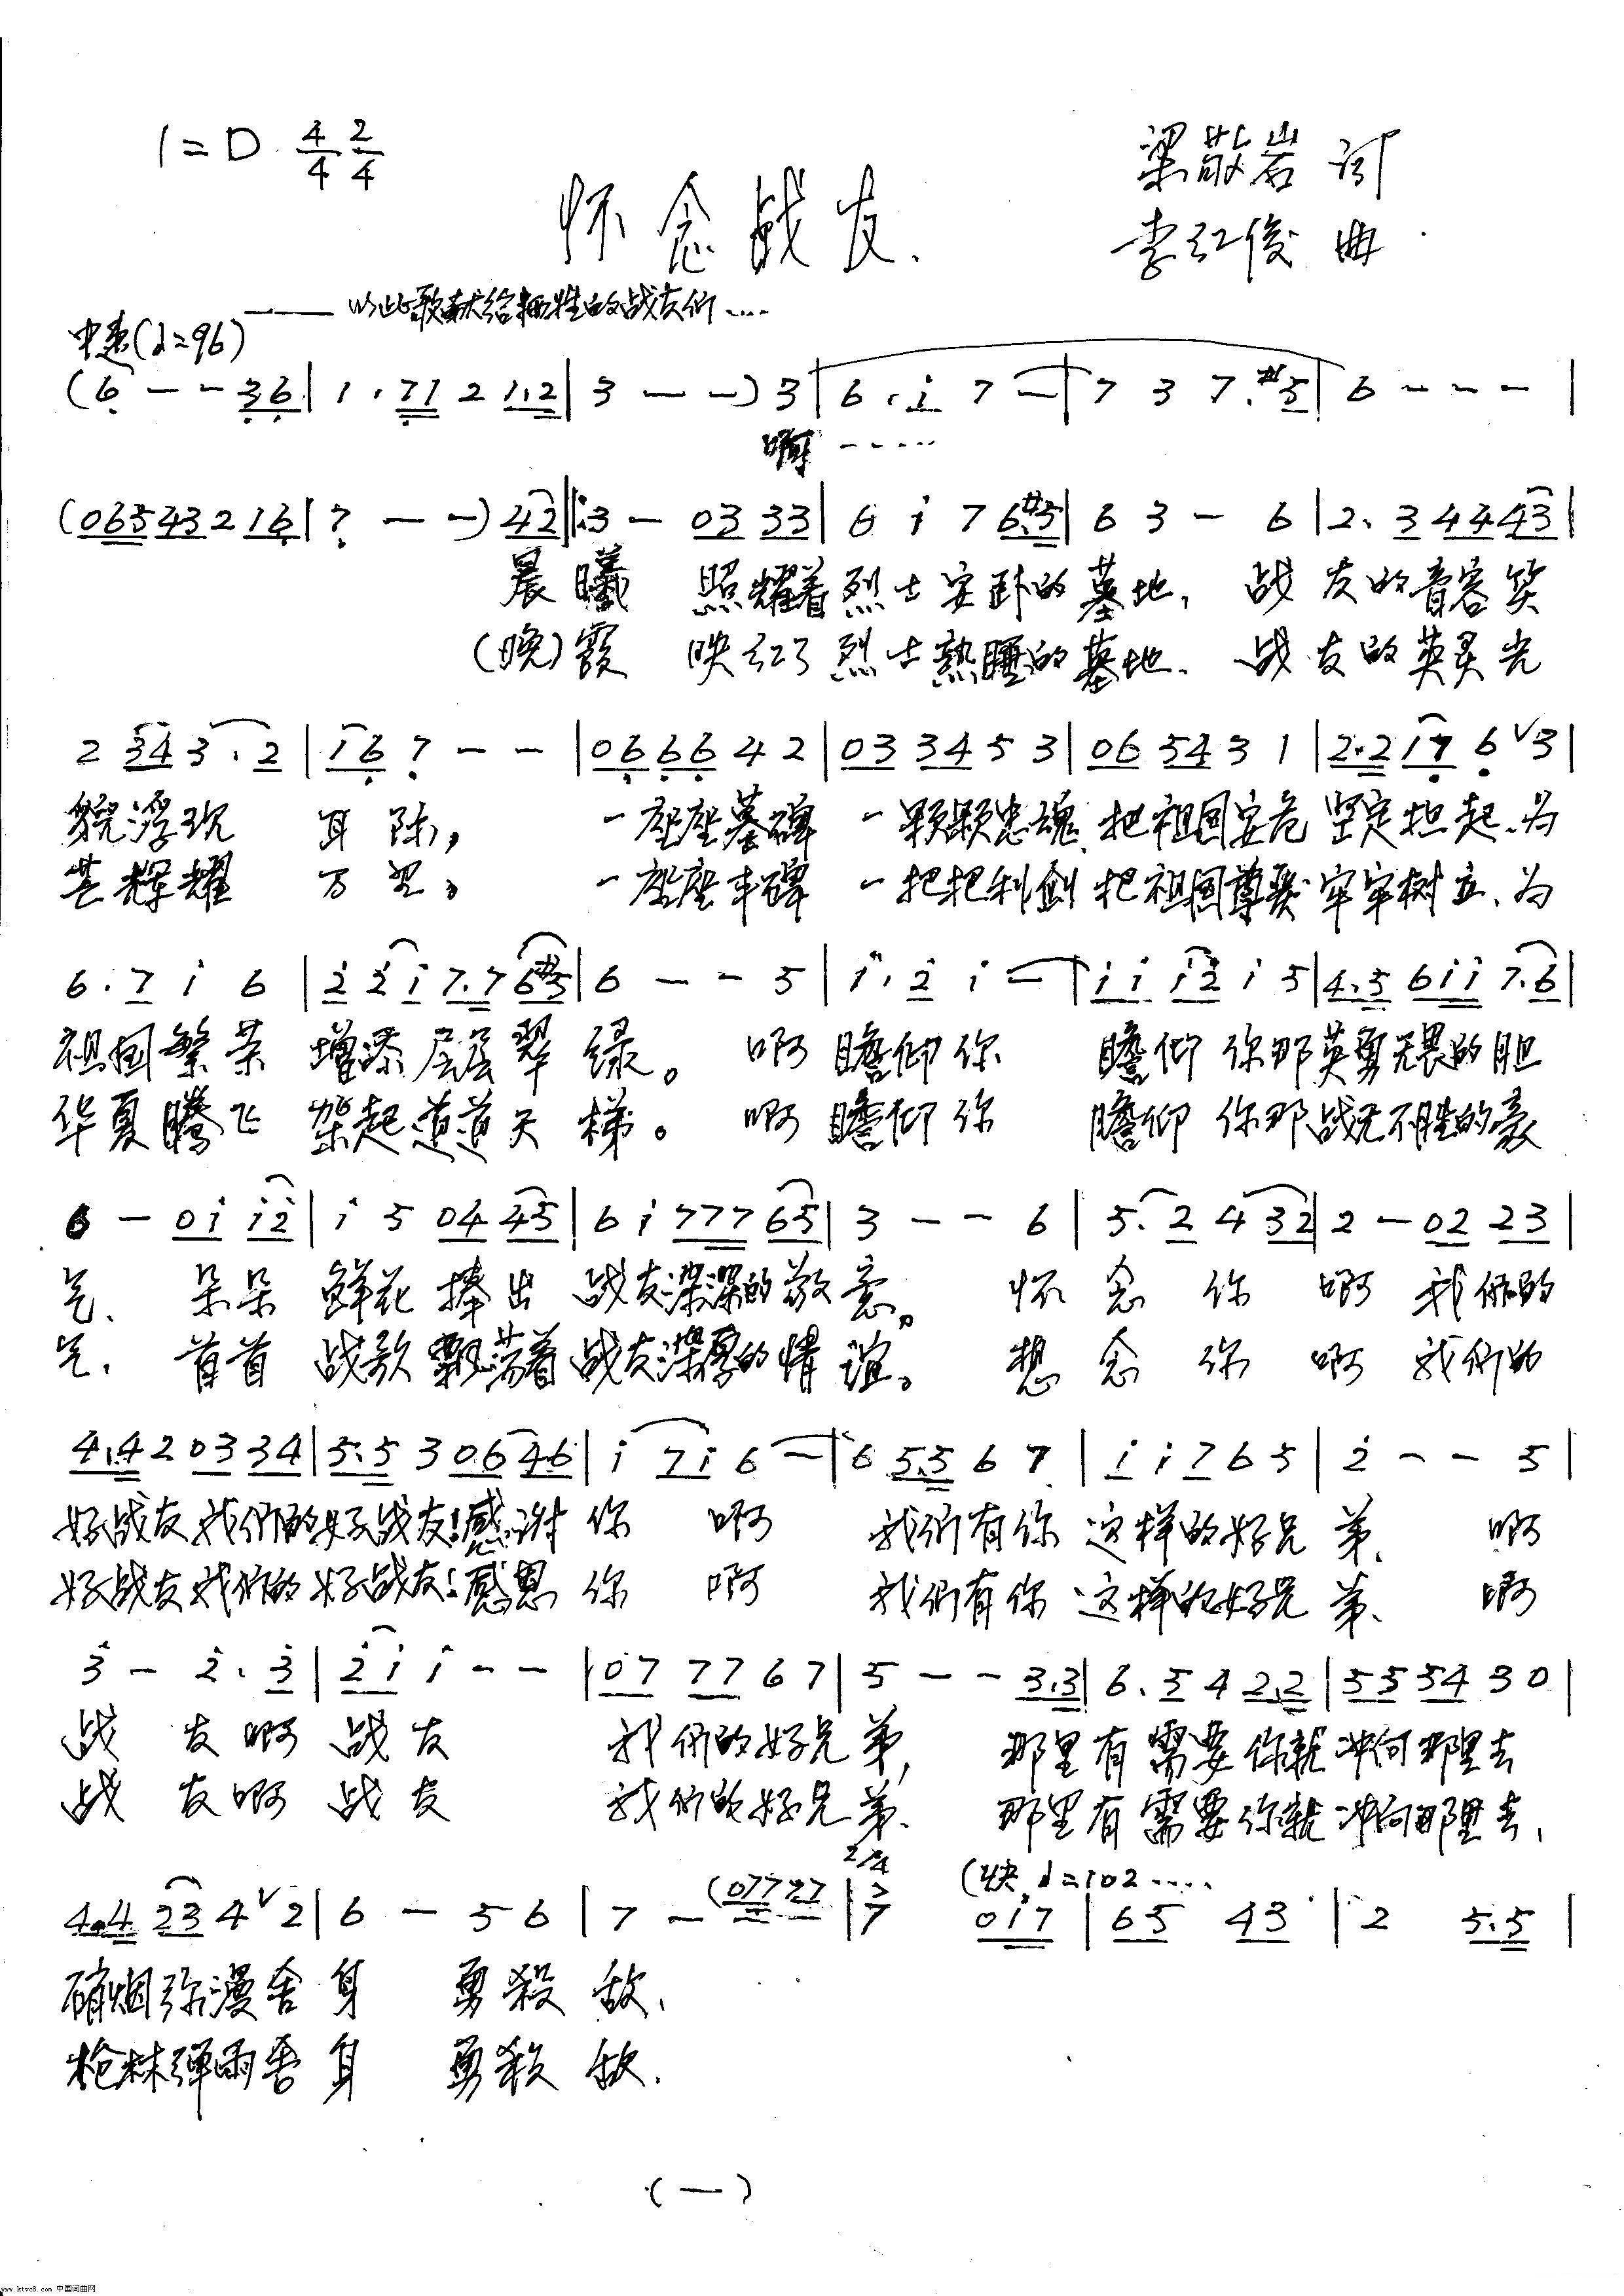 1=D 4/4 2/4
梁敬岩 词
怀念战友.
李红俊 曲
——以此歌献给牺牲的战友们....
中速(♩=96)
(6 - - 36 | 1 . 71 2 1.2 | 3 - - ) 3 | 6 . i 7 - | 7 3 7.#5 | 6 - - - |
啊 - - ....
(06543216 | 7 - - ) 42 |: 3 - 03 33 | 6 i 7 6.#5 | 6 3 - 6 | 2. 3 44 43 |
晨曦 照耀着烈士安卧的墓地, 战友的音容笑
(晚)霞 映红了烈士熟睡的墓地. 战友的英灵光
2 34 3 . 2 | 16 7 - - | 06 66 4 2 | 03 34 5 3 | 06 54 3 1 | 2.2 17 6 ∨3 |
貌浮现 耳际, 一座座墓碑 一颗颗忠魂, 把祖国安危 坚定担起.为
芒辉耀 万里, 一座座丰碑 一把把利剑 把祖国尊严 牢牢树立、为
6 . 7 i 6 | 2 2i 7.7 6#5 | 6 - - 5 | i . 2 i - | i i i2 i 5 | 4.5 6ii 7.6 |
祖国繁荣 增添层层翠绿。 啊瞻仰你 瞻仰你那英勇无畏的胆
华夏腾飞 架起道道天梯。 啊瞻仰你 瞻仰你那战无不胜的豪
6 - 0i i2 | i 5 04 45 | 6 i 777 65 | 3 - - 6 | 5. 2 4 32 | 2 - 02 23 |
气. 朵朵鲜花捧出 战友深深的敬意。 怀念你 啊 我们的
气. 首首战歌飘荡着战友深厚的情谊。 想念你 啊 我们的
4.4 2 03 34 | 5.5 3 06 46 | i 7i 6 - | 6 5.5 6 7 | i i 7 6 5 | 2 - - 5 |
好战友我们的好战友!感谢你 啊 我们有你 这样的好兄弟、 啊
好战友我们的好战友!感恩你 啊 我们有你 这样的好兄弟、 啊
3 - 2 . 3 | 2i i - - | 07 77 6 7 | 5 - - 3.3 | 6 . 5 4 2.2 | 55 54 3 0 |
战友啊战友 我们的好兄弟, 那里有需要你就冲向那里去
战友啊战友 我们的好兄弟. 那里有需要你就冲向那里去,
2/4
(快 ♩=102 ....
4.4 23 4 ∨2 | 6 - 5 6 | 7 - (0777 7 | 7 0i7 | 65 43 | 2 5.5 |
硝烟弥漫舍身 勇殺敌.
枪林弹雨舍身 勇殺敌.
(一)
www.ktvc8.com 中国词曲网